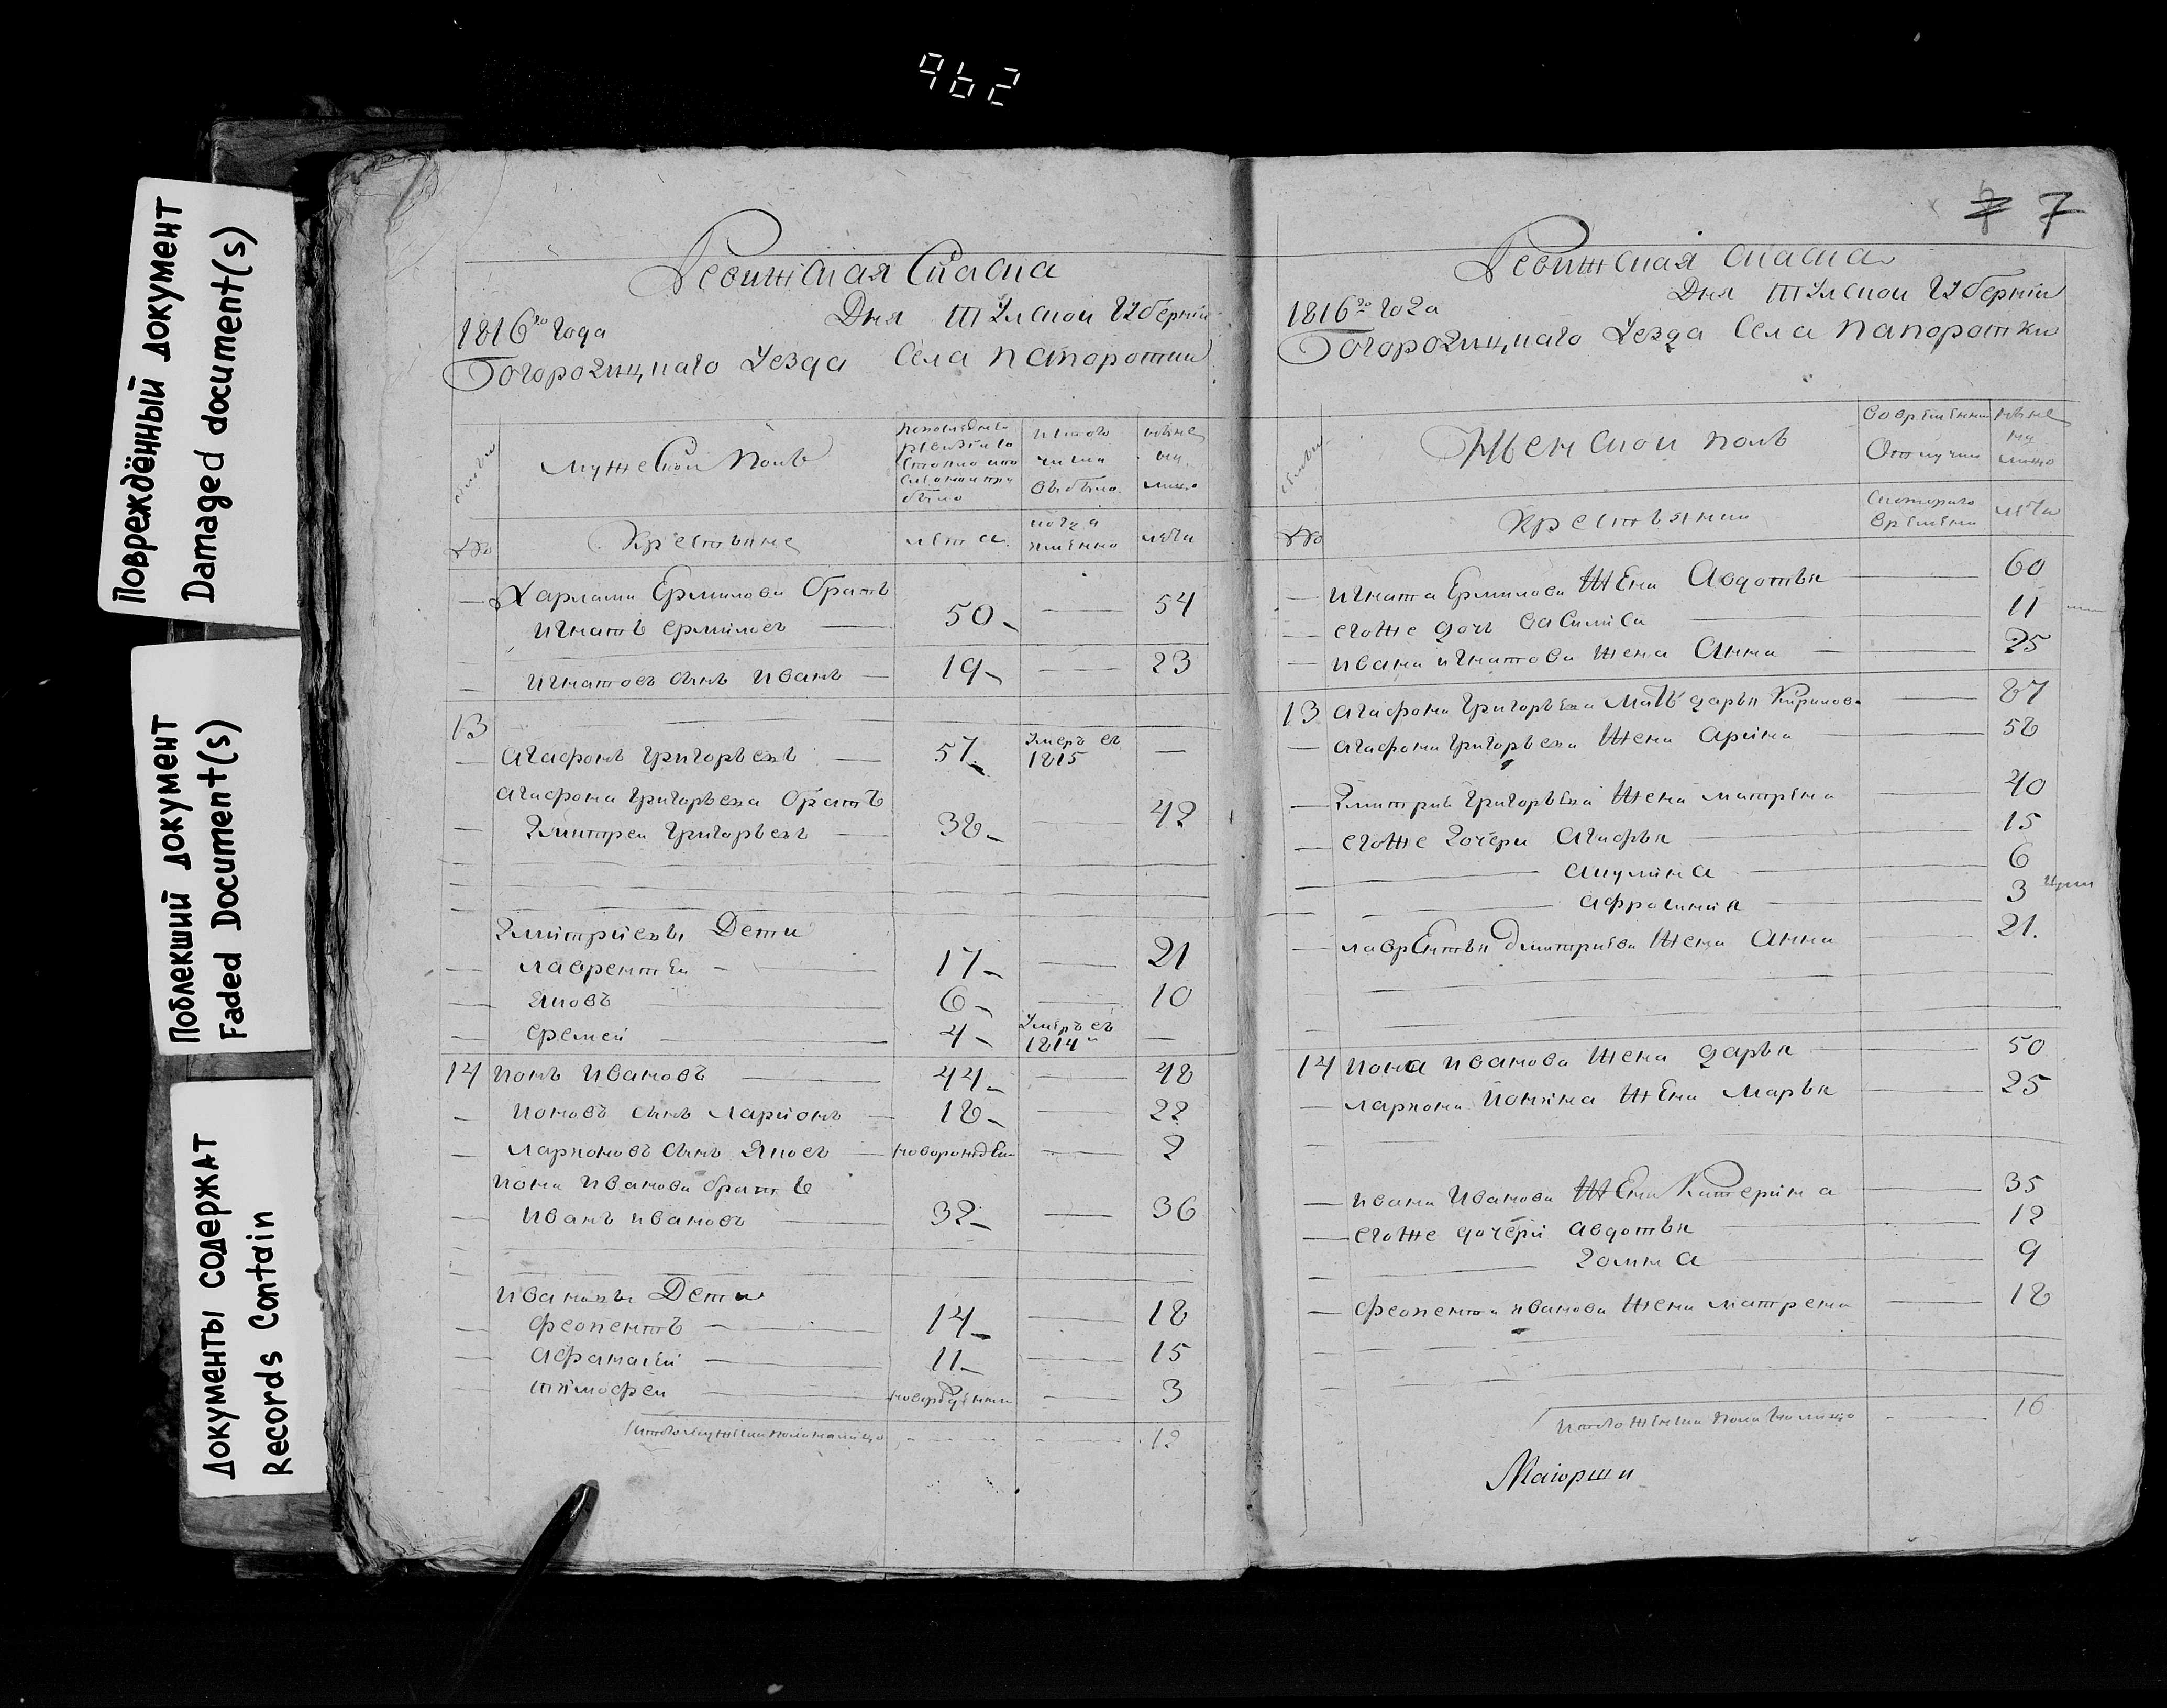 962
Повреждённый документ
Damaged document(s)
Поблекший документ
Faded Document(s)
Документы содержат
Records Contain
Ревижская Сказка
1816го года Дня Тулской Губернии
Богородицкаго Уезда Села Папоротки
семьи
Мужеской Полъ
лѣта
№
Крестьяне
лета
когда имянно
лѣта
— Харлама Ермилова братъ
Игнатъ Ермиловъ — 50 — 54
— Игнатовъ сынъ Иванъ — 19 — 23
13
— Агафонъ Григорьевъ — 57 умеръ въ 1815 —
Агафона Григорьева братъ
— Дмитрей Григорьевъ — 38 — 42
Дмитриевы Дети
— Лаврентей — 17 — 21
— Яковъ — 6 — 10
— Еремей — 4 умеръ въ 1814м —
14 Ионъ Ивановъ — 44 — 48
— Ионовъ сынъ Ларионъ — 18 — 22
— Ларионовъ сынъ Яковъ — новорожден — 2
Иона Иванова братъ
— Иванъ Ивановъ — 32 — 36
Ивановы Дети
— Феопентъ — 14 — 18
— Афанасей — 11 — 15
— Тимофей — новорожденны — 3
Итого мужеска пола налицо — 12
7 7
Ревижская сказка
1816го года Дня Тулской Губернии
Богородицкаго Уезда Села Папоротки
семьи
Женской полъ
Во временной Отлучки
Ныне на лицо
№
Крестьянки
Скотораго времени
лѣта
— Игната Ермилова жена Авдотья — 60
— Егоже дочь Василиса — 11
— Ивана Игнатова жена Анна — 25
13 Агафона Григорьева мать Дарья Кирилова — 87
— Агафона Григорьева жена Арина — 58
— Дмитрия Григорьева жена Матрена — 40
— Егоже дочери Агафья — 15
— Акулина — 6
— Афросинья — 3
— Лаврентья Дмитриева жена Анна — 21.
14 Иона Иванова жена Дарья — 50
— Лариона Ионина жена Марья — 25
— Ивана Иванова жена Катерина — 35
— Егоже дочери Авдотья — 12
— Домна — 9
— Феопента Иванова жена Матрена — 18
Итого женска пола налицо — 16
Маиорши